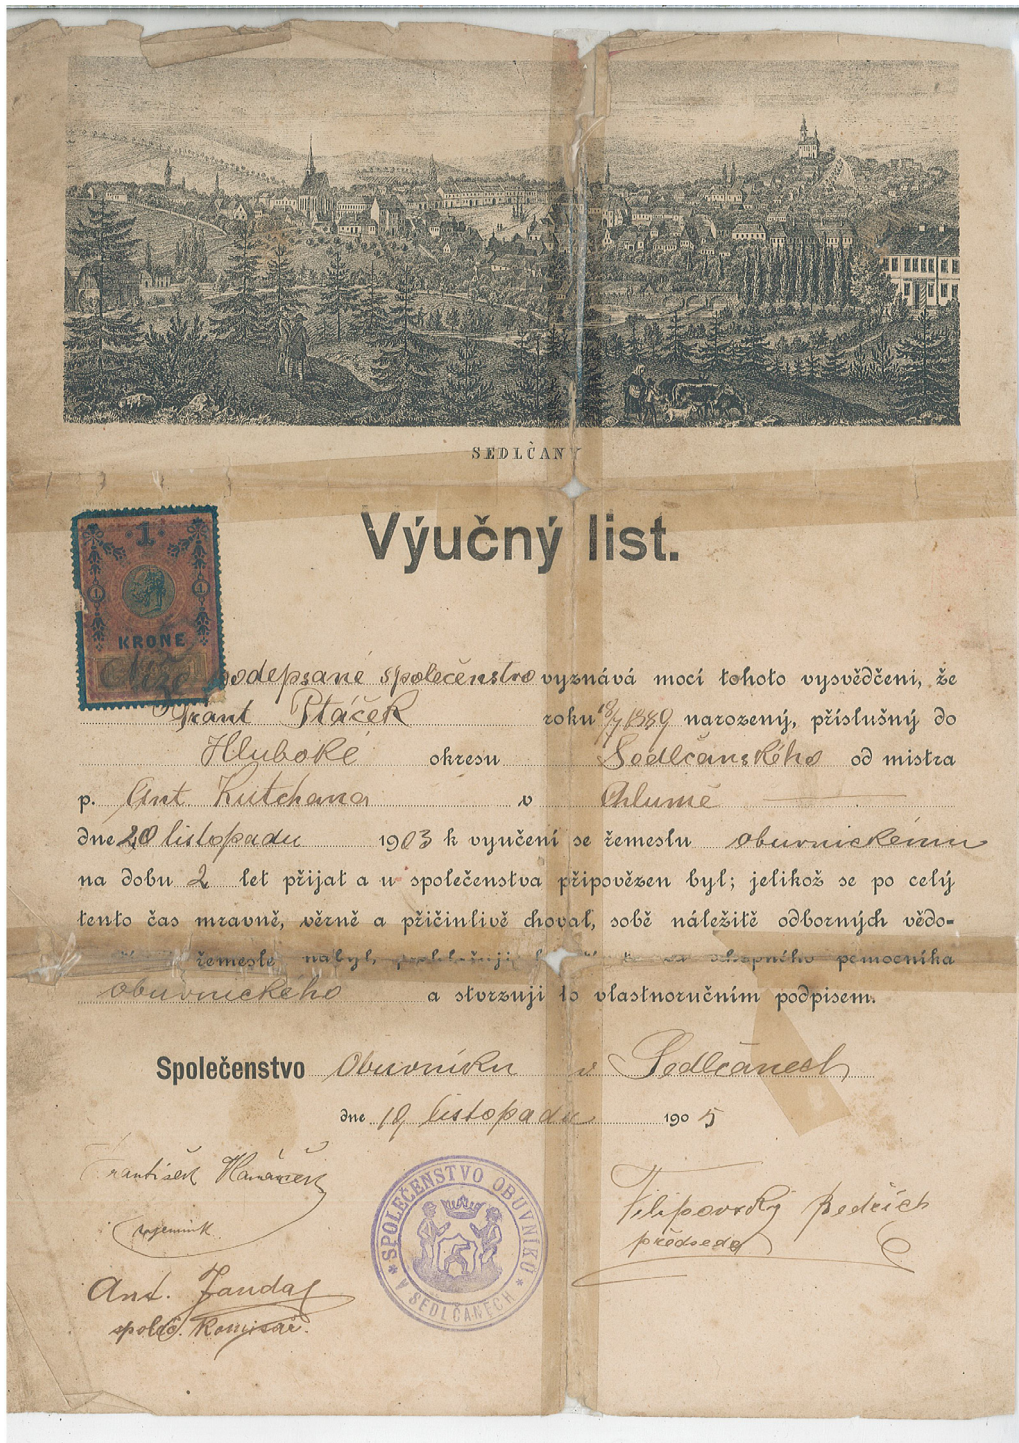 SEDLČANY
Výučný list.
1
1 1
KRONE
Níže podepsané společenstvo vyznává mocí tohoto vysvědčení, že
Frant Ptáček roku 1889 narozený, příslušný do
Hluboké okresu Sedlčanského od mistra
p. Ant v Chlumě
dne 20 listopadu 1903 k vyučení se řemeslu obuvnickému
na dobu 2 let přijat a u společenstva připovězen byl; jelikož se po celý
tento čas mravně, věrně a přičinlivě choval, sobě náležitě odborných vědo-
řemesle nabyl, schopného pomocníka
obuvnického a stvrzují to vlastnoručním podpisem.
Společenstvo Obuvníku v Sedlčanech
dne 19 listopadu 1905
František
tajemník
Filipovský Bedřich
předseda
Ant. Janda
společ. Komisař.
* SPOLEČENSTVO OBUVNÍKŮ * V SEDLČANECH